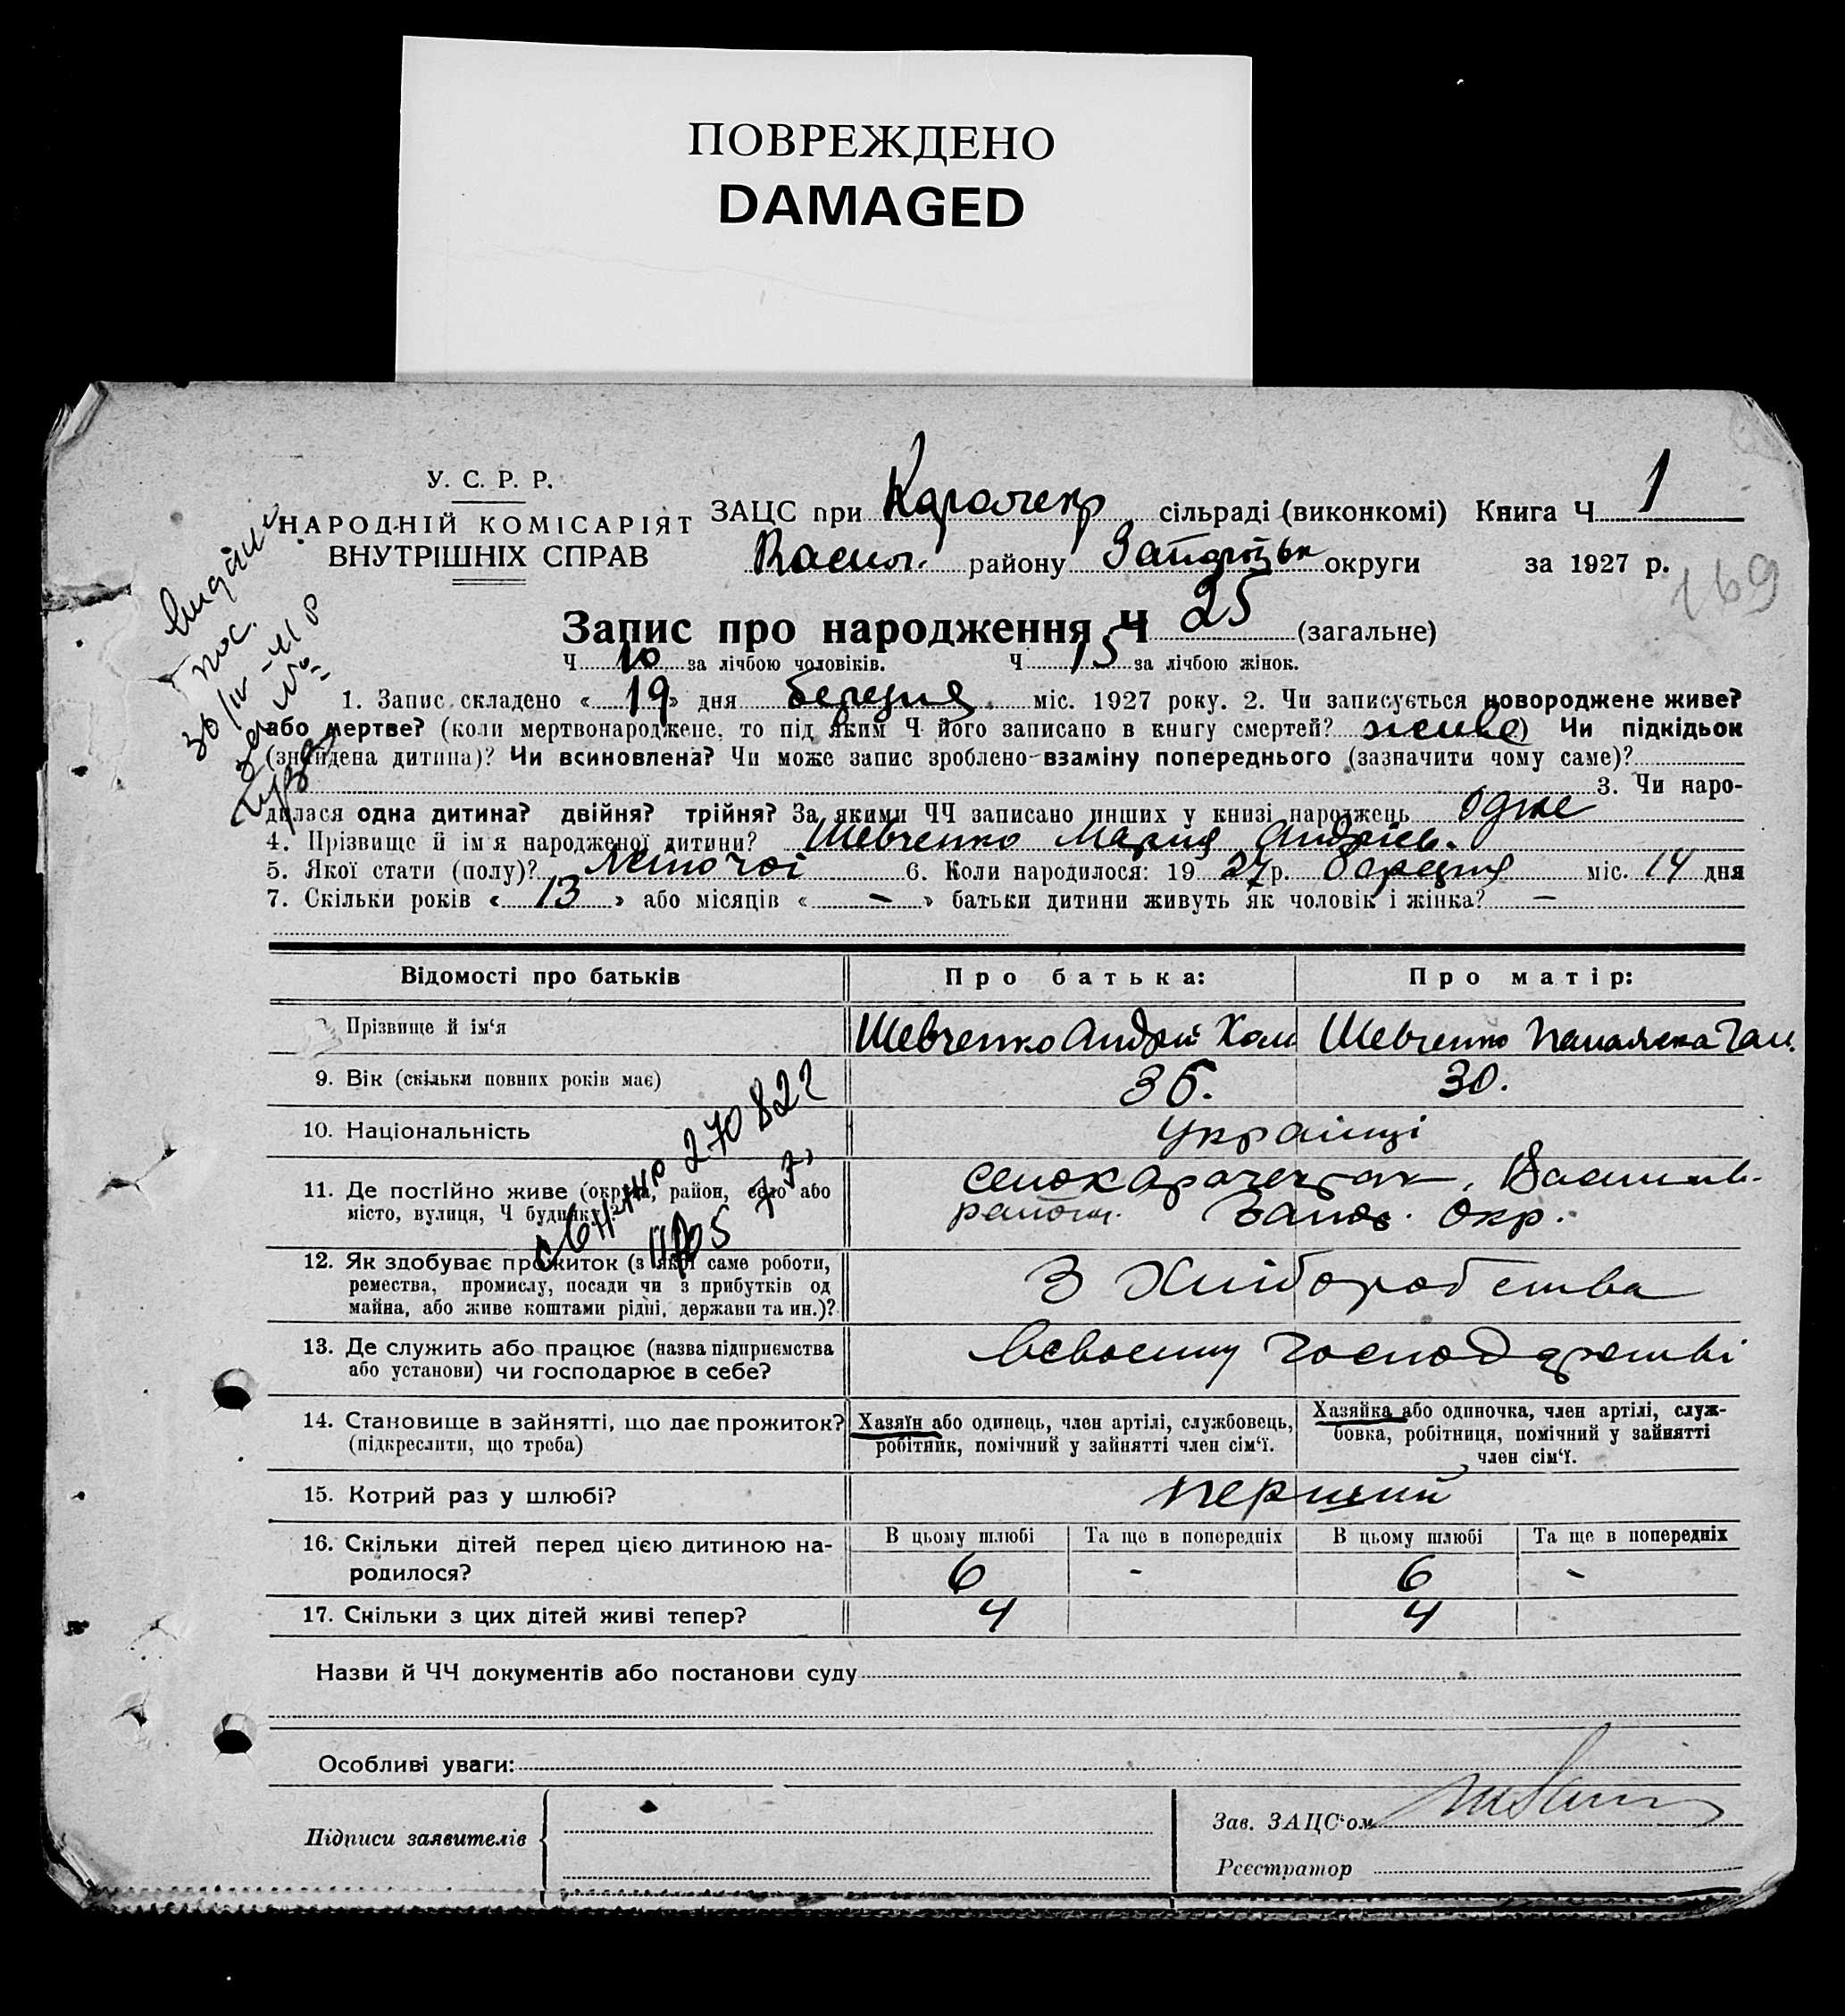 ПОВРЕЖДЕНО
DAMAGED
У. С. Р. Р.
НАРОДНІЙ КОМІСАРІЯТ
ВНУТРІШНІХ СПРАВ
ЗАЦС при Карачекр сільраді (виконкомі) Книга Ч. 1
району округи за 1927 р.
169
Запис про народження Ч 25 (загальне)
Ч 10 за лічбою чоловіків. Ч 15 за лічбою жінок.
1. Запис складено « 19 » дня березня міс. 1927 року. 2. Чи записується новороджене живе?
або мертве? (коли мертвонароджене, то під яким Ч його записано в книгу смертей? живе) Чи підкідьок
(знайдена дитина)? Чи всиновлена? Чи може запис зроблено взаміну попереднього (зазначити чому саме)?
3. Чи наро-
дилася одна дитина? двійня? трійня? За якими ЧЧ записано инших у книзі народжень одне
4. Прізвище й ім'я народженої дитини? Шевченко Марія Андріев.
5. Якої стати (полу)? жіночоі 6. Коли народилося: 19 27 р. березня міс. 14 дня
7. Скільки років « 13 » або місяців « – » батьки дитини живуть як чоловік і жінка? –
Відомості про батьків Про батька: Про матір:
Прізвище й ім'я Шевченко Андрій Хом Шевченко
9. Вік (скільки повних років має) 36. 30.
10. Національність українці
11. Де постійно живе (округа, район, село або
місто, вулиця, Ч будинку)?
село Карачекрак, Василів.
район. Запоз. Окр.
12. Як здобуває прожиток (з якої саме роботи,
ремества, промислу, посади чи з прибутків од
майна, або живе коштами рідні, держави та ин.)?
З Хліборобства
13. Де служить або працює (назва підприємства
або установи) чи господарює в себе?
Всвоєму господарстві
14. Становище в зайнятті, що дає прожиток?
(підкреслити, що треба)
Хазяїн або одинець, член артілі, службовець,
робітник, помічний у зайнятті член сім'ї.
Хазяйка або одиночка, член артілі, служ-
бовка, робітниця, помічний у зайнятті
член сім'ї.
15. Котрий раз у шлюбі? перший
16. Скільки дітей перед цією дитиною на-
родилося?
В цьому шлюбі Та ще в попередніх В цьому шлюбі Та ще в попередніх
6 - 6 -
17. Скільки з цих дітей живі тепер? 4 4
270822
Назви й ЧЧ документів або постанови суду
Особливі уваги:
Підписи заявителів
Зав. ЗАЦС'ом
Реєстратор